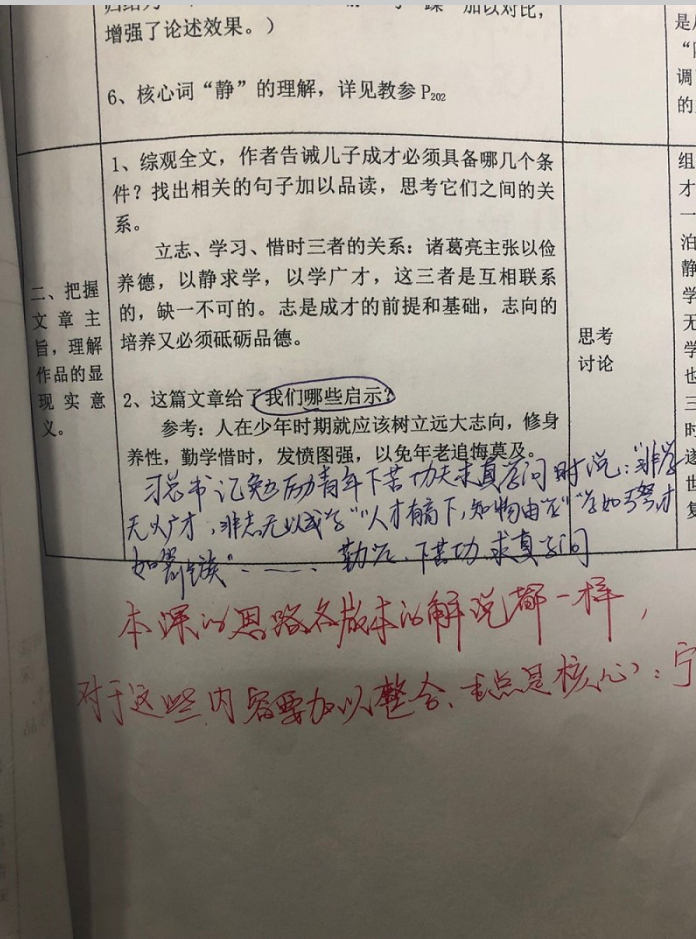 增强了论述效果。）
6、核心词“静”的理解，详见教参 P202
1、综观全文，作者告诫儿子成才必须具备哪几个条
件？找出相关的句子加以品读，思考它们之间的关
系。
立志、学习、惜时三者的关系：诸葛亮主张以俭
养德，以静求学，以学广才，这三者是互相联系
的，缺一不可的。志是成才的前提和基础，志向的
培养又必须砥砺品德。
2、这篇文章给了我们哪些启示？
参考：人在少年时期就应该树立远大志向，修身
养性，勤学惜时，发愤图强，以免年老追悔莫及。
二、把握
文章主
旨，理解
作品的显
现实意
义。
思考
讨论
习总书记勉励青年下苦功夫求真学问时说：“非学
无以广才，非志无以成学”“人才有高下，知物由学”“学如弓弩，才
如箭镞” 勤学、下苦功、求真学问
本课的思路各版本的解说都一样，
对于这些内容要加以整合、重点是核心：宁
是
调
的
组
才
一
泊
静
学
无
学
也
三
时
遂
世
复